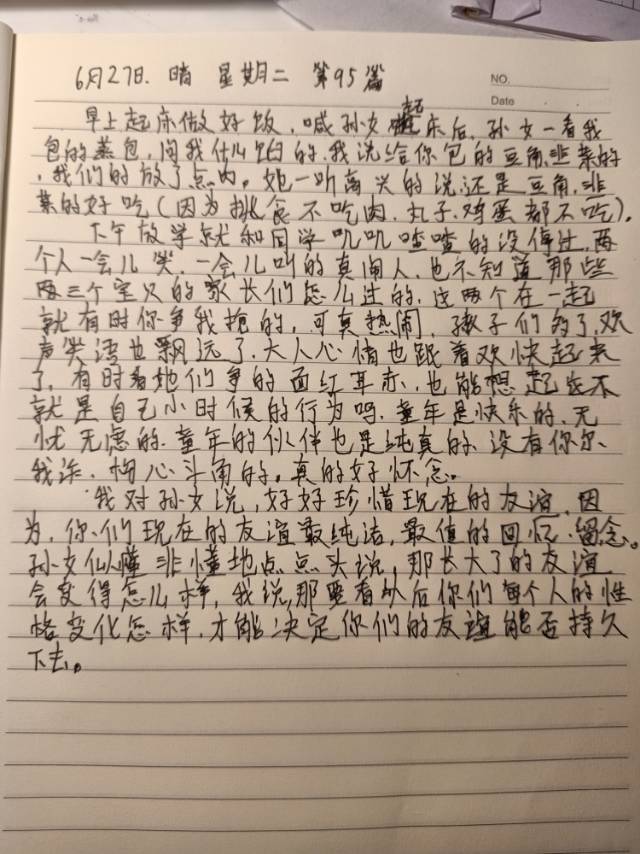 6月27日. 晴 星期二 第95篇
NO.
Date
早上起床做好饭，喊孙女起床后，孙女一看我
包的蒸包，问我什么馅的，我说给你包的豆角、韭菜的
，我们的放了点肉。她一听高兴的说还是豆角、韭
菜的好吃（因为挑食不吃肉、丸子、鸡蛋都不吃）。
下午放学就和同学叽叽喳喳的没停过，两
个人一会儿笑、一会儿叫的真闹人，也不知道那些
两三个宝贝的家长们怎么过的，这两个在一起
就有时你争我抢的，可真热闹，孩子们多了，欢
声笑语也飘远了，大人心情也跟着欢快起来
了，有时看她们争的面红耳赤，也能想起这不
就是自己小时候的行为吗，童年是快乐的、无
忧无虑的，童年的伙伴也是纯真的，没有你尔
我诈，构心斗角的。真的好怀念。
我对孙女说，好好珍惜现在的友谊，因
为，你们现在的友谊最纯洁，最值的回忆、留念。
孙女似懂非懂地点点头说，那长大了的友谊
会变得怎么样，我说，那要看以后你们每个人的性
格变化怎样，才能决定你们的友谊能否持久
下去。